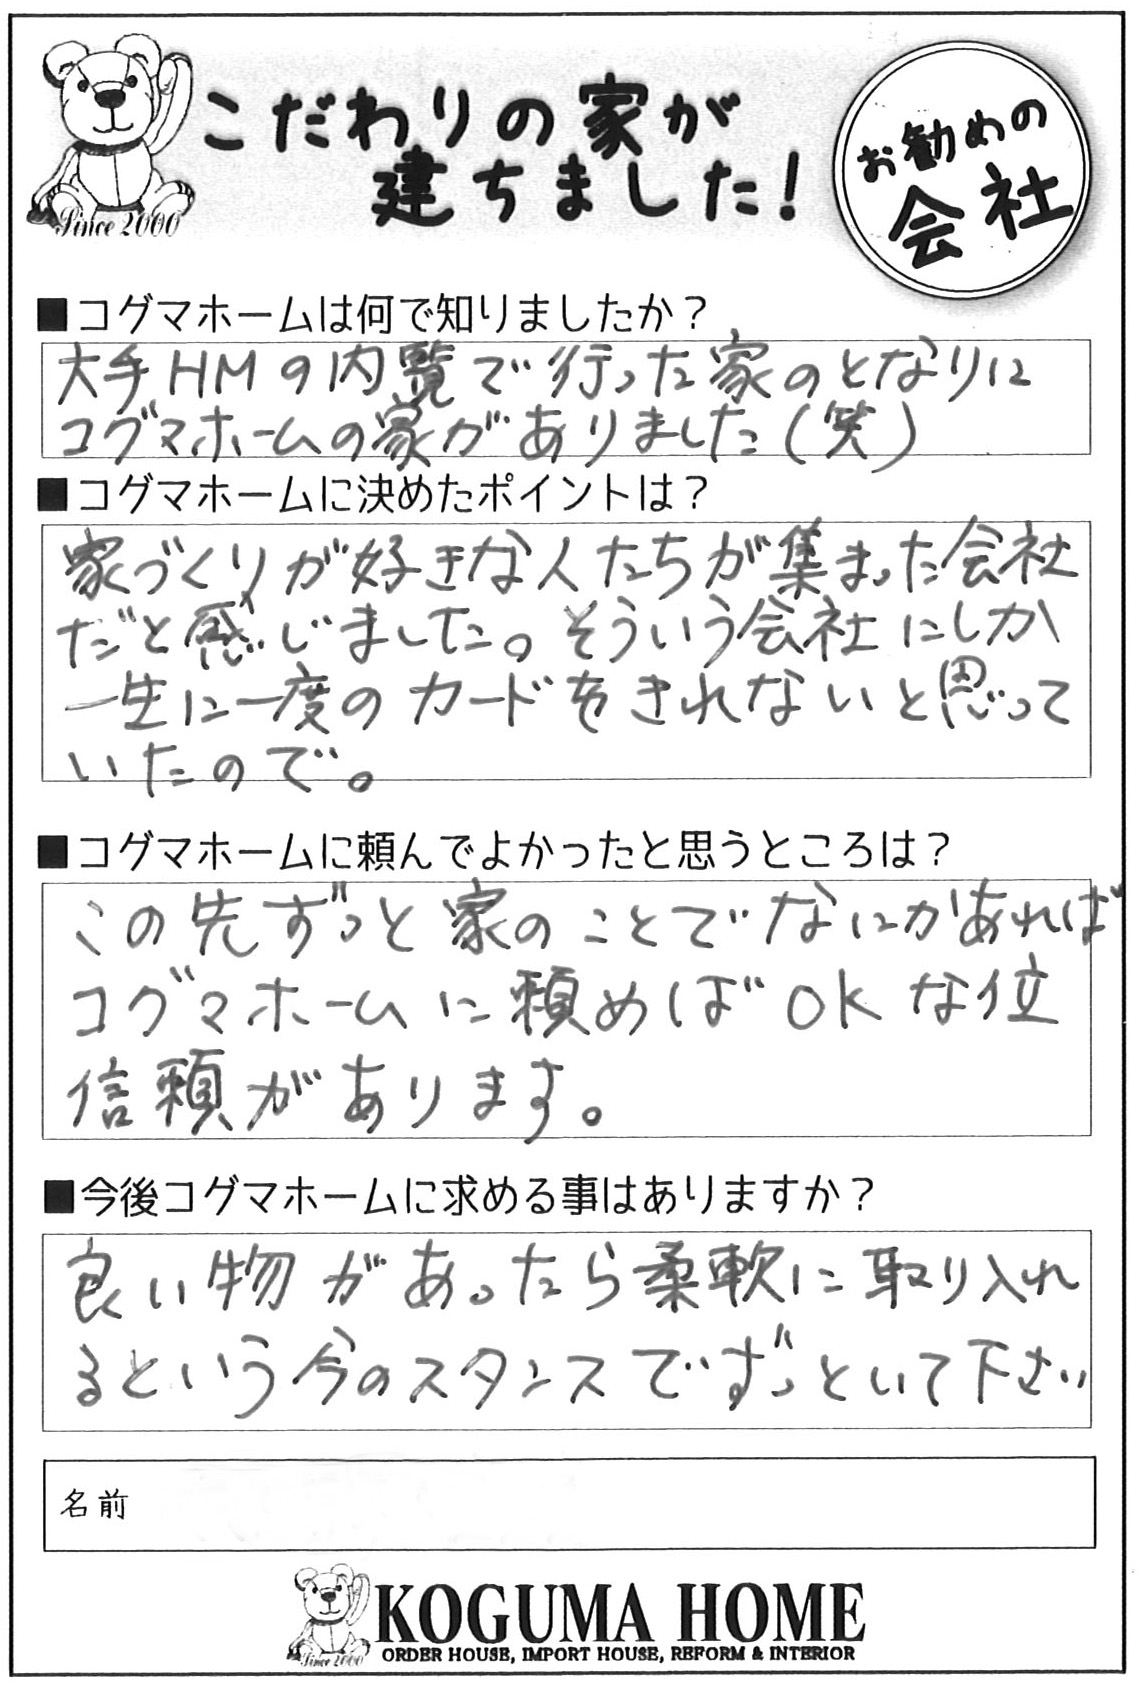 こだわりの家が
建ちました!
お勧めの
会社
Since 2000
■コグマホームは何で知りましたか？
大手HMの内覧で行った家のとなりに
コグマホームの家がありました(笑)
■コグマホームに決めたポイントは？
家づくりが好きな人たちが集まった会社
だと感じました。そういう会社にしか
一生に一度のカードをきれないと思って
いたので。
■コグマホームに頼んでよかったと思うところは？
この先ずっと家のことでなにかあれば
コグマホームに頼めばOKな位
信頼があります。
■今後コグマホームに求める事はありますか？
良い物があったら柔軟に取り入れ
るという今のスタンスでずっといて下さい
名前
Since 2000
KOGUMA HOME
ORDER HOUSE, IMPORT HOUSE, REFORM & INTERIOR